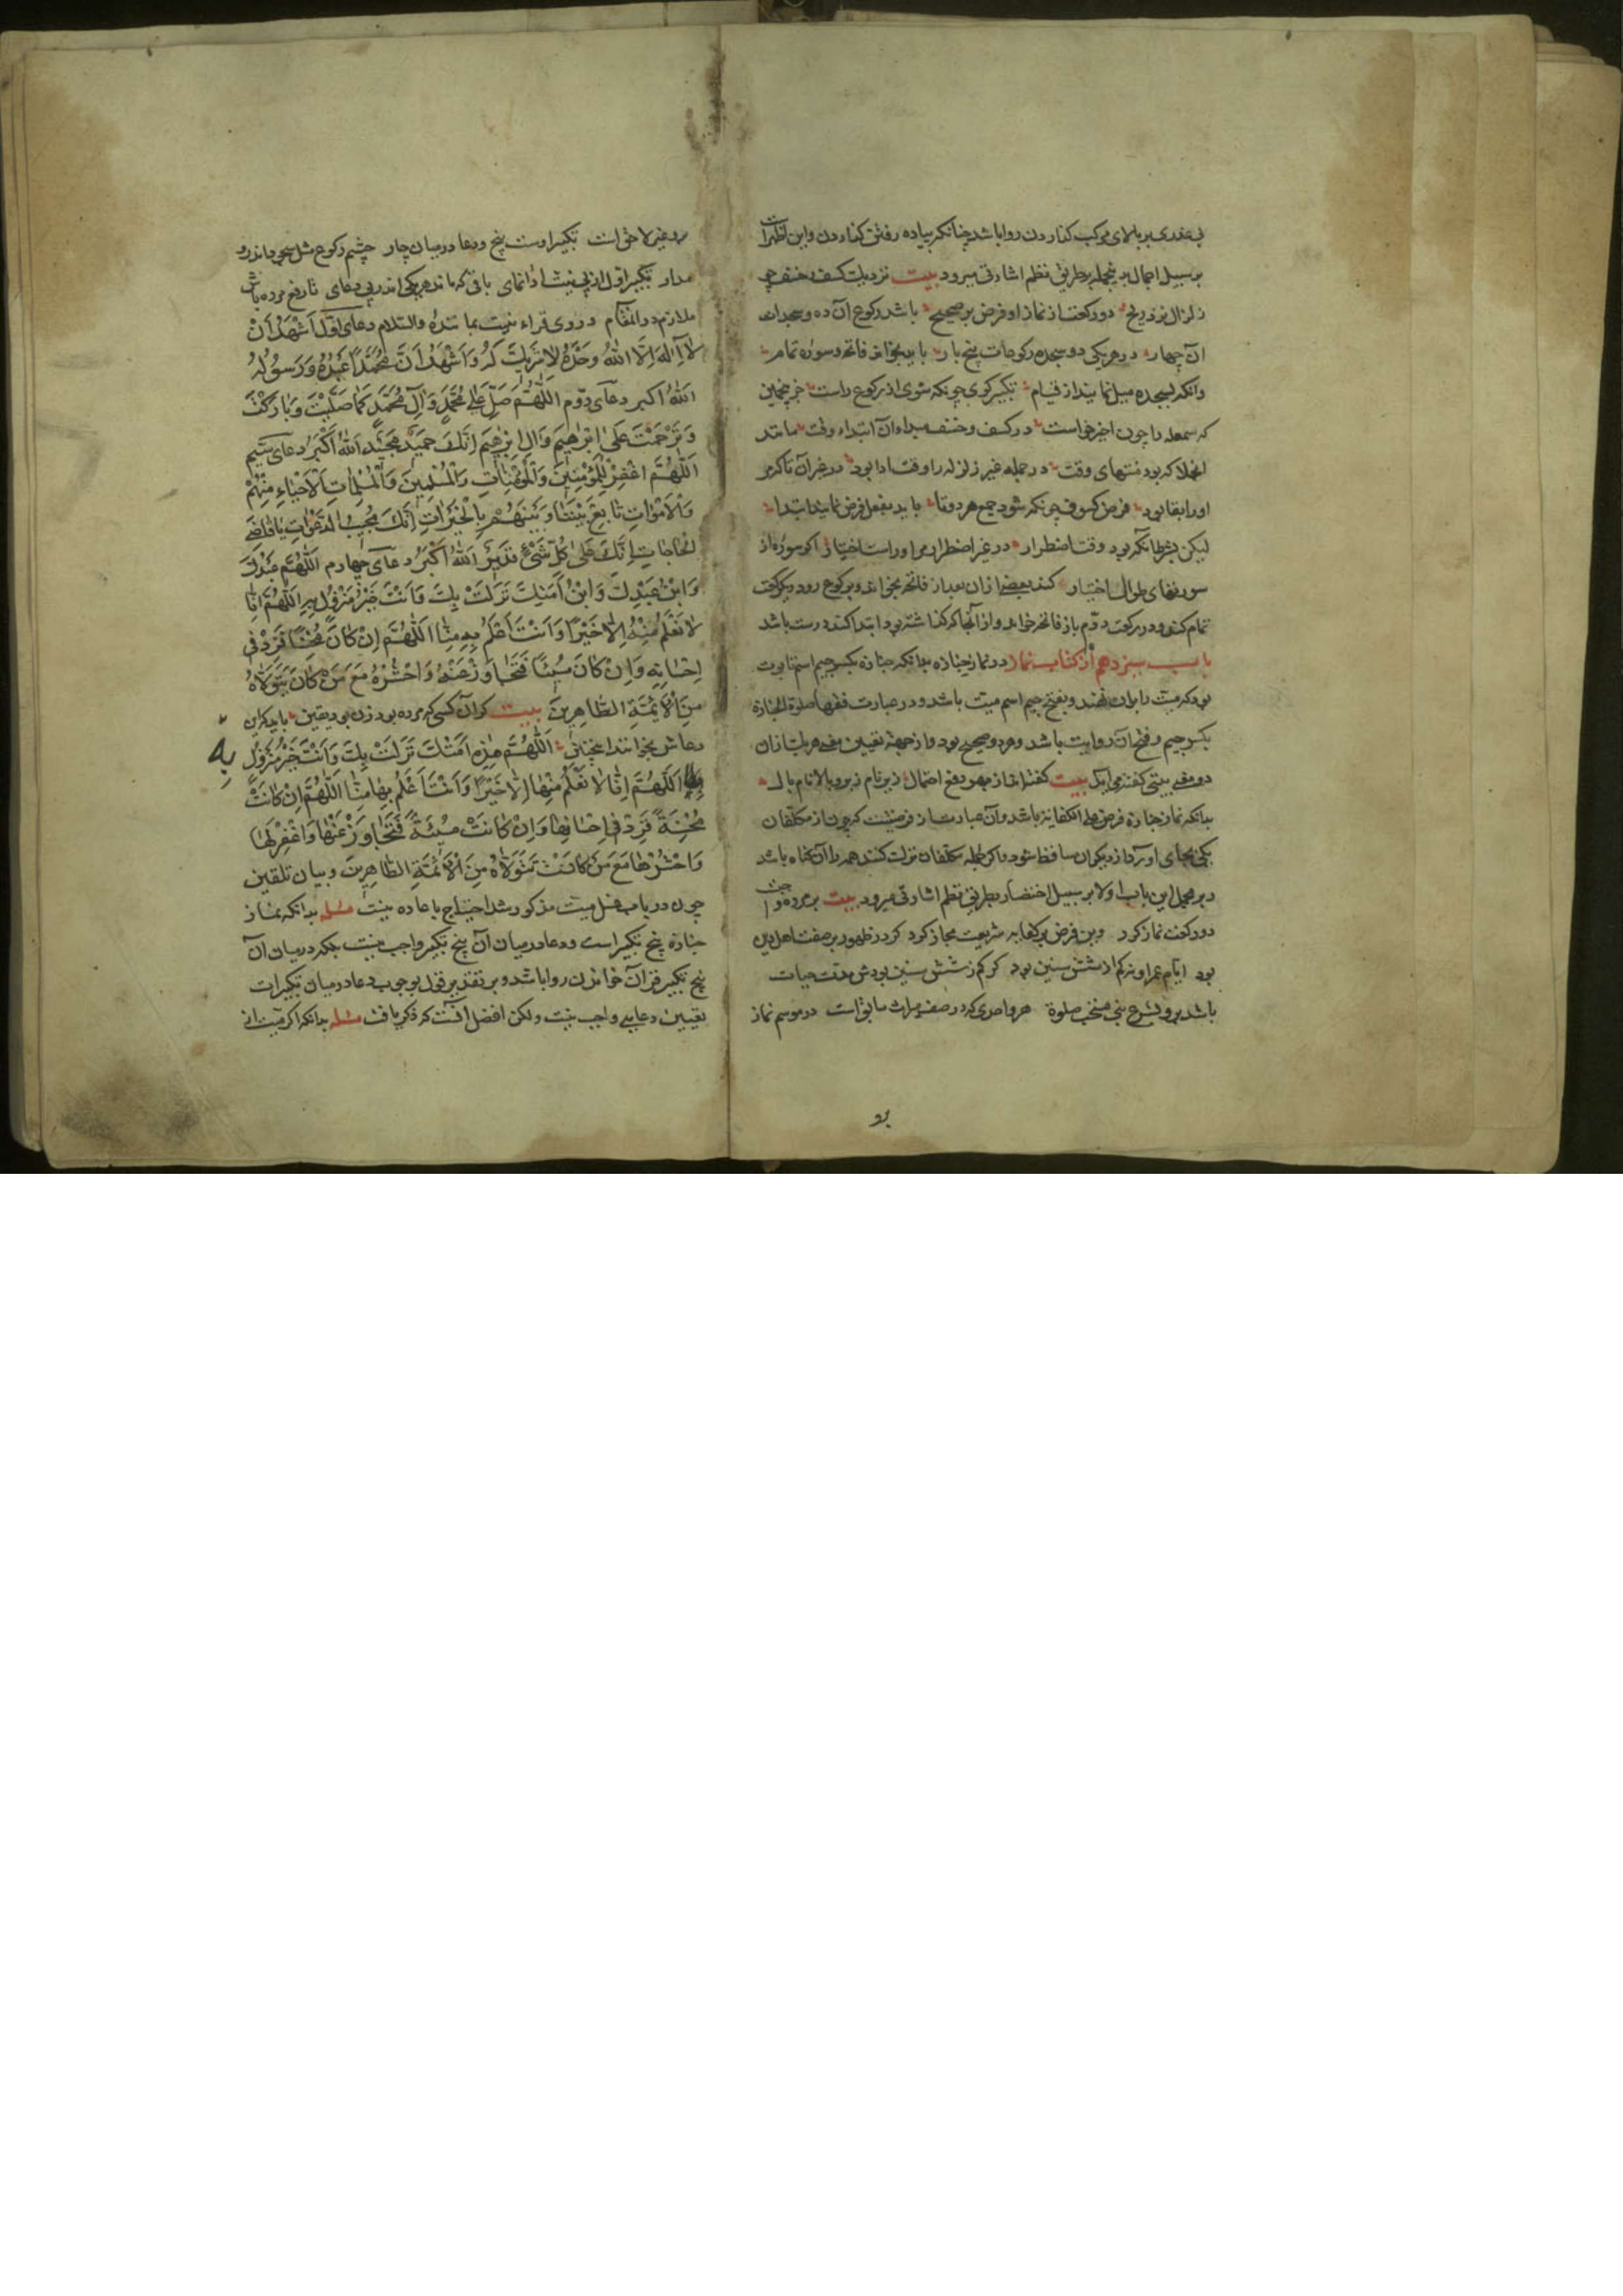 بی عذری بر بالای مرکب کذاردن روا باشد چنانکه پیاده رفتن کذاردن و این نظر را
بر سبیل اجمال بدین جمله بطریق نظم اشارتی میرود بیت نزدیک کسف و خسف چو
زلزال نیز دو رکعت از نماز او فرض بر صحیح باشد رکوع آن ده و سجدات
ان چهار در هر یکی دو سجده رکوعات پنج بار باید بخواند فاتحه و سوره تمام
وانکه بسجده میل نماید از قیام تکبیر کوی چونکه شوی از رکوع راست جز پنجمین
که سمعله را چون اخر خواست در کسف و خسف مبداء آن ابتداء وقت مانند
انجلا که بود منتهای وقت در جمله غیر زلزله را وقت ادا بود در غیر آن تا که
او را بقا بود فرض کسوف چونکه شود جمع هر دو تا باید بفعل فرض نمایند ابتدا
لیکن بشرط آنکه بود وقت اضطرار در غیر اضطرار مر او راست اختیار اکر سوره از
سورتهای طوال اختیار کند بعضی از ان بعد از فاتحه بخواند و برکوع رود و یک رکعت
تمام کند و در رکعت دوم باز فاتحه خواند و از آنجا که کذاشته بود ابتدا کند درست باشد
باب سیزدهم از کتاب نماز در نماز جنازه بدانکه جنازه بکسر جیم اسم تابوت
بود که میت را بران نهند و بفتح جیم اسم میت باشد و در عبارت فقها صلوة الجنازة
بکسر جیم و فتح آن روایت باشد و هر دو صحیح بود و از جهة تعیین معنی هر یک از ان
دو معنی بیتی کفته می آید بیت
بدانکه نماز جنازه فرض علی الکفایه باشد و آن عبارت از فرضیست که چون از مکلفان
یکی بجای اورد از دیکران ساقط شود و اکر جمله مکلفان ترک کنند همه را آن کناه باشد
و بر مجمل این باب اولا بر سبیل اختصار بطریق نظم اشارتی میرود بیت بر مرده و
دو رکعت نماز کرد وین فرض بر کفایه شریعت مجاز کرد کر در ظهور بر صفت اهل دین
بود ایام عمر او نه کم از شش سنین بود کر کم ز شش سنین بودش مدت حیات
باشد برو بشرع نبی مستحب صلوة هر واحدی که در صف میراث سابق است در موسم نماز
برو غیر لاحق است تکبیر اوست پنج و دعا در میان چار چشم رکوع مثل سجود اندرو
مدار تکبیر اول از پی نیت ادا نمای باقی که ماند هر یکی اندر پی دعای تا رفع مرده باش
ملازم در المقام در وی قراءة نیست بما تنده والسلام دعای اول اشهد ان
لا اله الا الله وحده لا شریک له و اشهد ان محمدا عبده و رسوله
الله اکبر دعای دوم اللهم صل علی محمد و آل محمد کما صلیت و بارکت
و ترحمت علی ابرهیم و آل ابرهیم انک حمید مجید الله اکبر دعای سیم
اللهم اغفر للمؤمنین و المؤمنات و المسلمین و المسلمات الاحیاء منهم
و الاموات تابع بیننا و بینهم بالخیرات انک مجیب الدعوات یا قاضی
الحاجات انک علی کل شیء قدیر الله اکبر دعای چهارم اللهم عبدک
و ابن عبدک و ابن امتک نزل بک و انت خیر منزول به اللهم انا
لا نعلم منه الا خیرا و انت اعلم به منا اللهم ان کان محسنا فزد فی
احسانه و ان کان مسیئا فتجاوز عنه و احشره مع من کان یتولاه
من الائمة الطاهرین بیت کر آن کسی که مرده بود زن بود یقین باید که این
دعاش بخوانند اینچنین اللهم هذه امتک نزلت بک و انت خیر منزول
به
اللهم انا لا نعلم منها الا خیرا و انت اعلم بها منا اللهم ان کانت
محسنة فزد فی احسانها و ان کانت مسیئة فتجاوز عنها و اغفر لها
و احشرها مع من کانت تتولاه من الائمة الطاهرین و بیان تلقین
چون در باب غسل میت مذکور شد احتیاج باعاده نیست مسئله بدانکه نماز
جنازه پنج تکبیر است و دعا در میان آن پنج تکبیر واجب نیست بلکه در میان آن
پنج تکبیر قرآن خواندن روا باشد و بر تقدیر قول بوجوب دعا در میان تکبیرات
تعیین دعایی واجب نیست ولکن افضل آنست که ذکر یافت مسئله بدانکه اکر میت از
برو